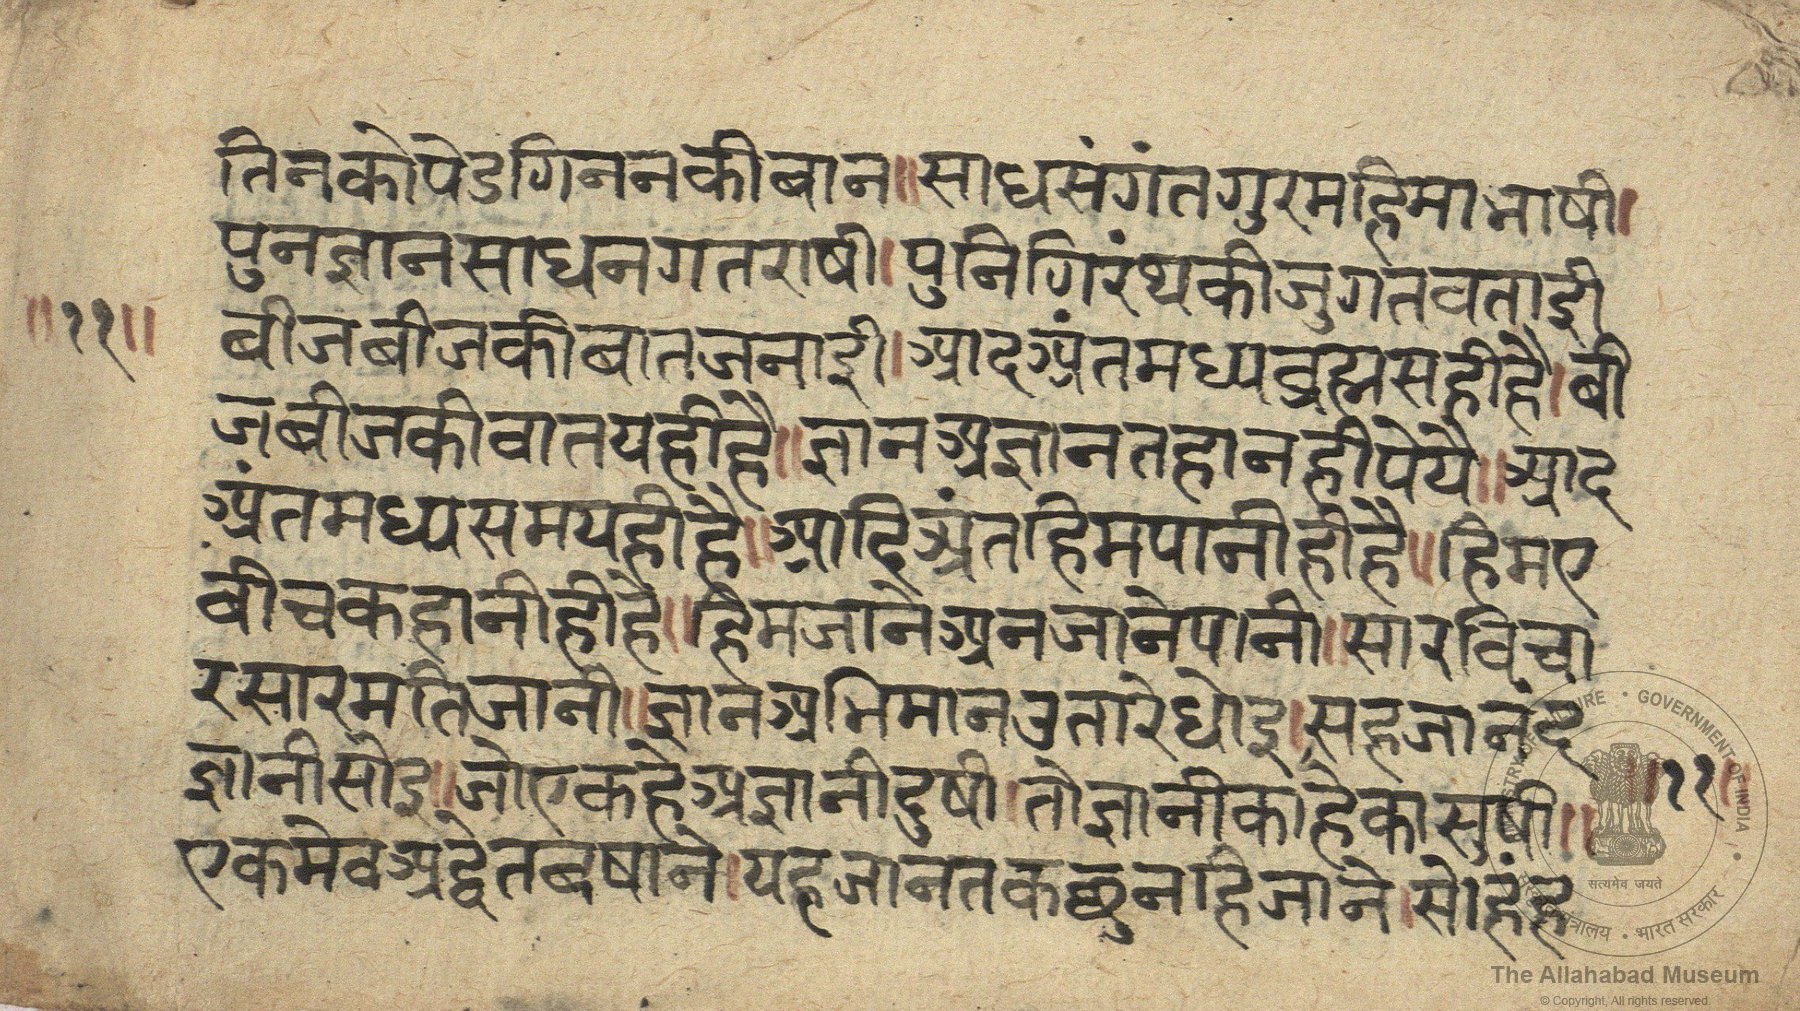 तिनकोपेडगिननकीबान॥साधसंगंतगुरमहिमाभाषी।
पुनज्ञानसाधनगतराषी।पुनिगिरंथकीजुगतवताई
॥११॥
बीजबीजकीबातजनाई।आदअंतमध्यब्रह्मसहीहै।बी
जबीजकीवातयहीहै॥ज्ञानअज्ञानतहानहीपेयै॥आद
अंतमध्यसमयहीहै॥आदिअंतहिमपानीहीहै॥हिमए
बीचकहानीहीहै॥हिमजानेअनजानेपानी॥सारविचा
रसारमतिजानी॥ज्ञानअभिमानउतारेधोइ।सहजानंद
ज्ञानीसोइ॥जोएकहेअज्ञानीदुषी।तोज्ञानीकोहैकासुषी॥
॥११॥
एकमेवअद्वेतबषाने।यहजानतकछुनहिजाने।सोहंह
MINISTRY OF CULTURE • GOVERNMENT OF INDIA
सत्यमेव जयते
संस्कृति मंत्रालय • भारत सरकार
The Allahabad Museum
© Copyright, All rights reserved.